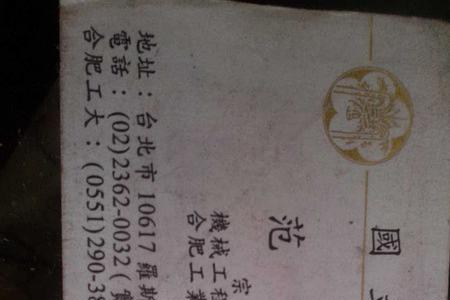 國立
范
宗
機械工程
合肥工業
地址：台北市 10617 羅斯
電話：(02)2362-0032(
合肥工大：(0551)290-38